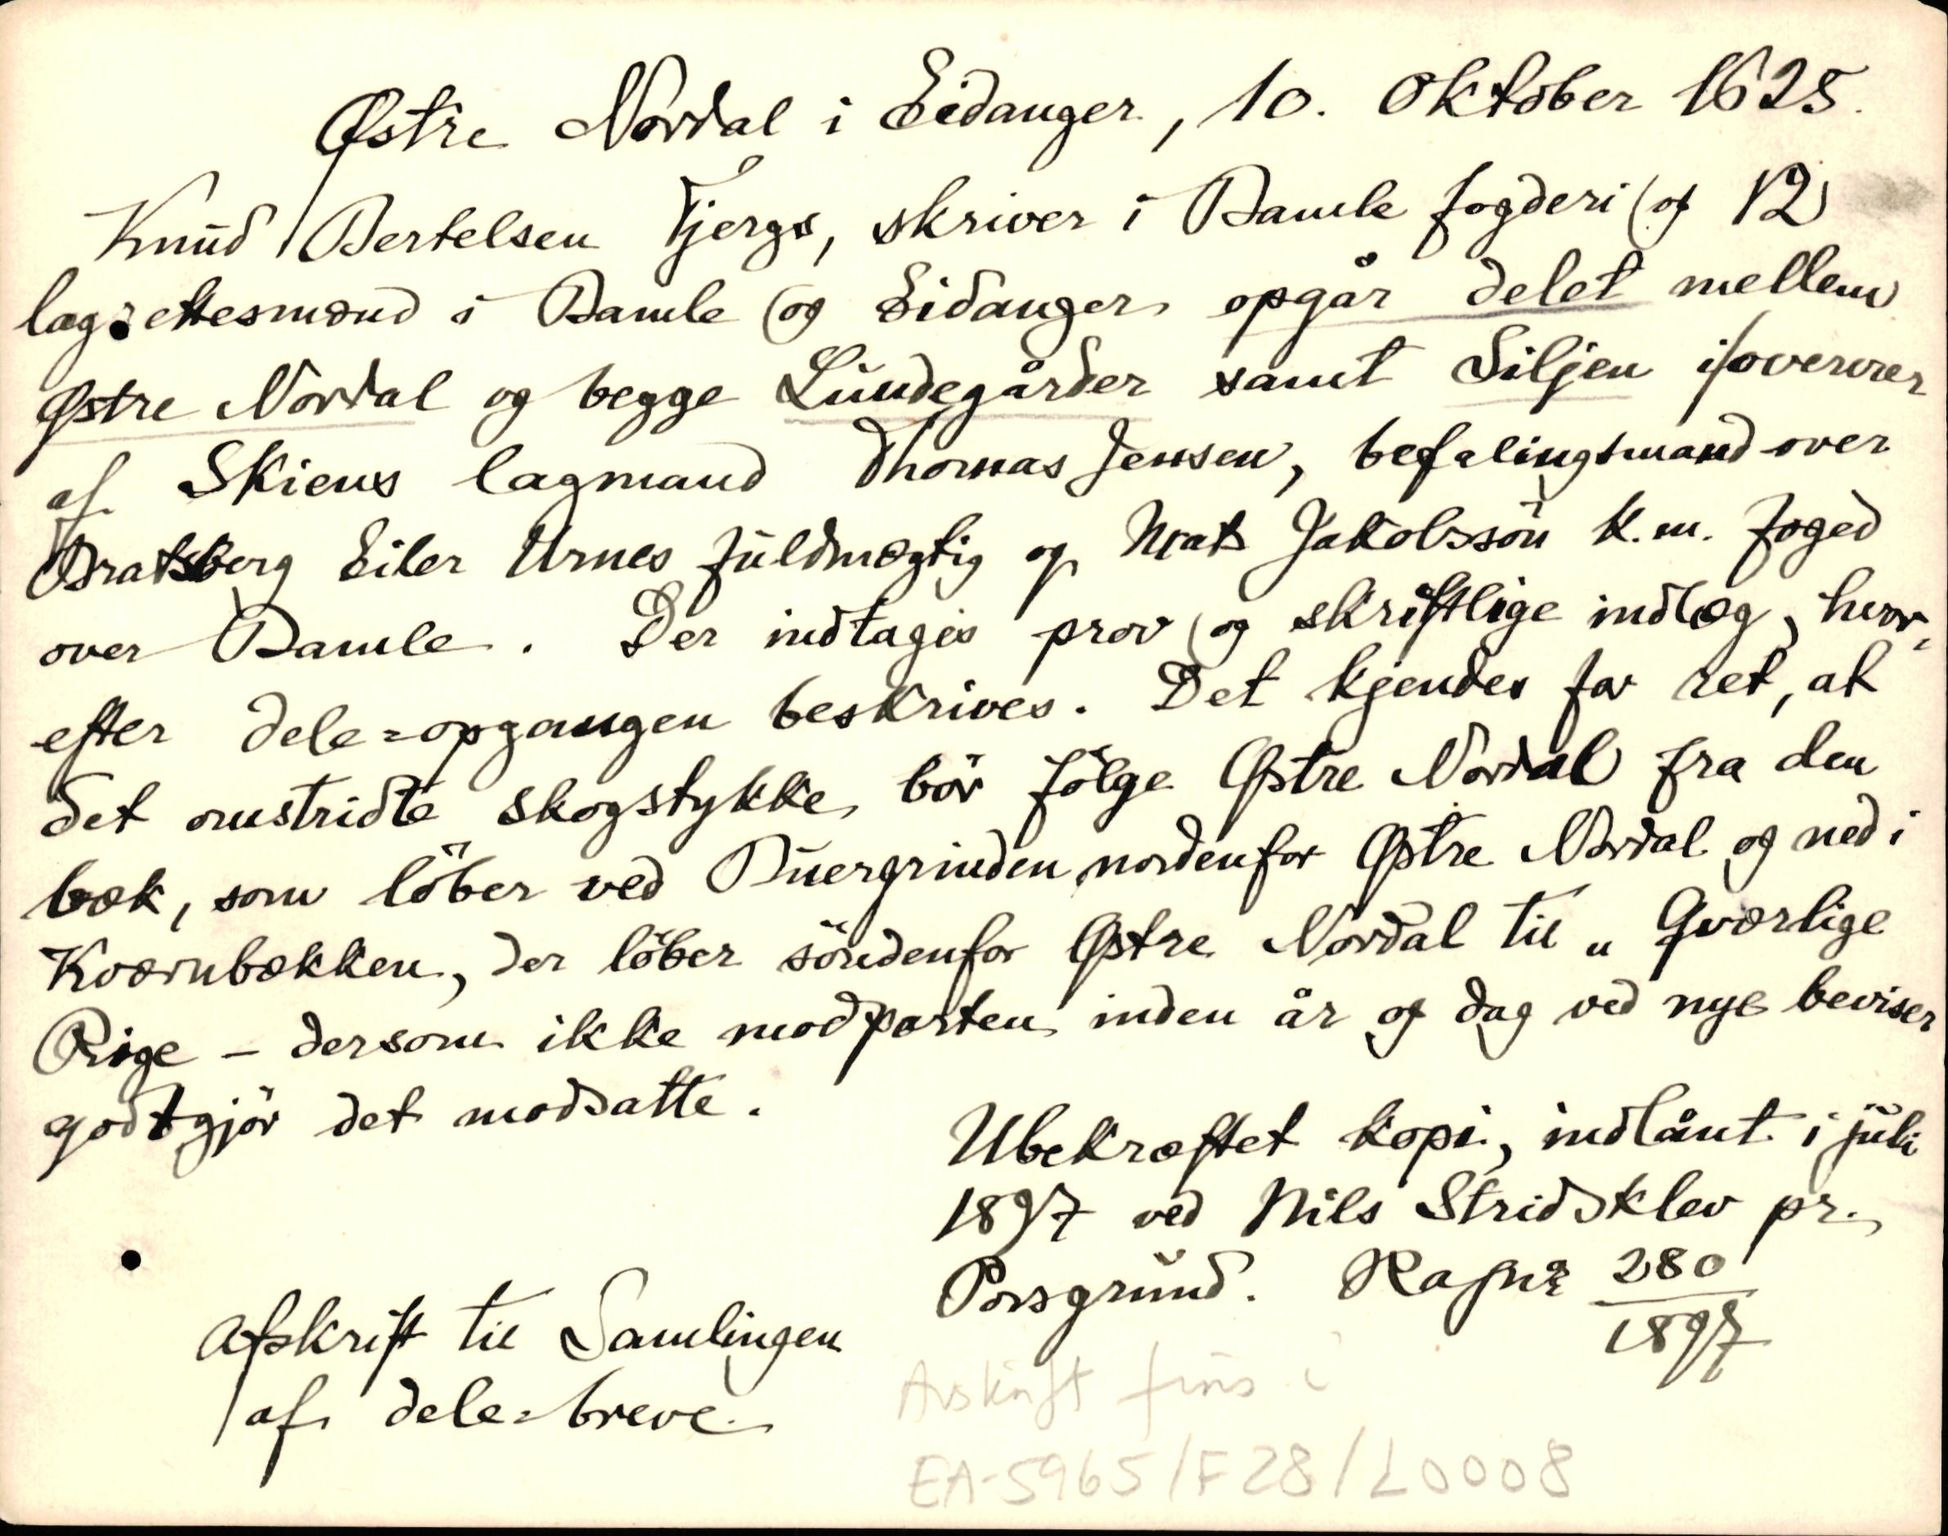 Østre Nordal i Eidanger, 10. Oktober 1625.
Knud Bertelsen Tjergs, skriver i Bamle fogderi og 12
lagrettesmænd i Bamle og Eidanger opgår delet mellem
Østre Nordal og begge Lundegårder samt Siljen i overvær
af Skiens lagmand Thomas Jensen, befalingsmand over
Bratsberg Eiler Urnes fuldmægtig og Mats Jakobssön K.m. foged
over Bamle. Der indtages prov og skriftlige indlæg, hvor-
efter dele=opgangen beskrives. Det kjendes for ret, at
det omstridte skogstykke bör fölge Østre Nordal fra den
bæk, som löber ved Buergrinden nordenfor Østre Nordal og ned i
Kværnbækken, der löber söndenfor Østre Nordal til „Qværlige
Rige – dersom ikke modparten inden år og dag ved nye beviser
godtgjör det modsatte.
Ubekræftet kopi, indlånt i juli
1897 ved Nils Stridsklev pr.
Porsgrund. Rafnr 280/1897
Afskrift til Samlingen
af dele=breve
Avskrift fins i
EA-5965/F28/L0008